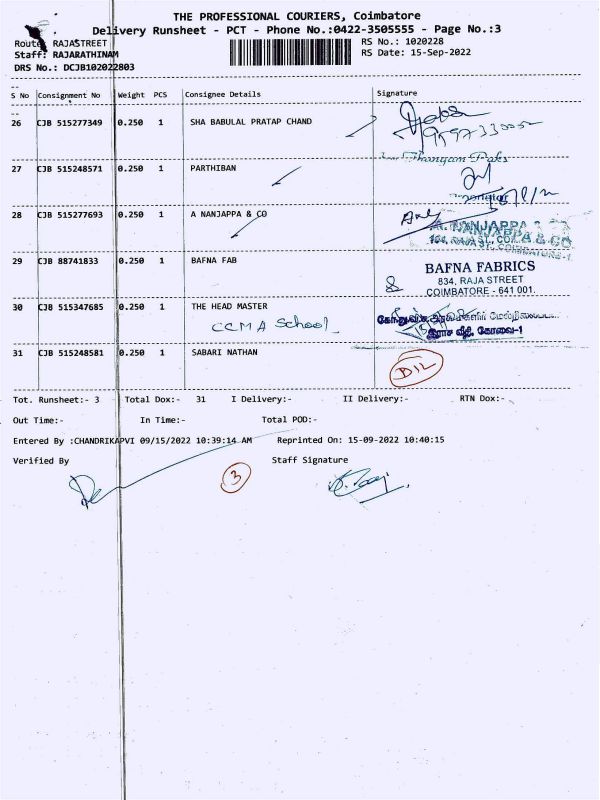 THE PROFESSIONAL COURIERS, Coimbatore
Delivery Runsheet - PCT - Phone No.:0422-3505555 - Page No.:3
Route RAJASTREET
RS No.: 1020228
Staff: RAJARATHINAM
RS Date: 15-Sep-2022
DRS No.: DCJB102022803
S No Consignment No Weight PCS Consignee Details Signature
26 CJB 515277349 0.250 1 SHA BABULAL PRATAP CHAND
27 CJB 515248571 0.250 1 PARTHIBAN
28 CJB 515277693 0.250 1 A NANJAPPA & CO
29 CJB 88741833 0.250 1 BAFNA FAB
BAFNA FABRICS
834, RAJA STREET
COIMBATORE - 641 001.
30 CJB 515347685 0.250 1 THE HEAD MASTER
CCMA School
இராச வீதி, கோவை-1
31 CJB 515248581 0.250 1 SABARI NATHAN
Tot. Runsheet:- 3 Total Dox:- 31 I Delivery:- II Delivery:- RTN Dox:-
Out Time:- In Time:- Total POD:-
Entered By :CHANDRIKAPVI 09/15/2022 10:39:14 AM Reprinted On: 15-09-2022 10:40:15
Verified By Staff Signature
3